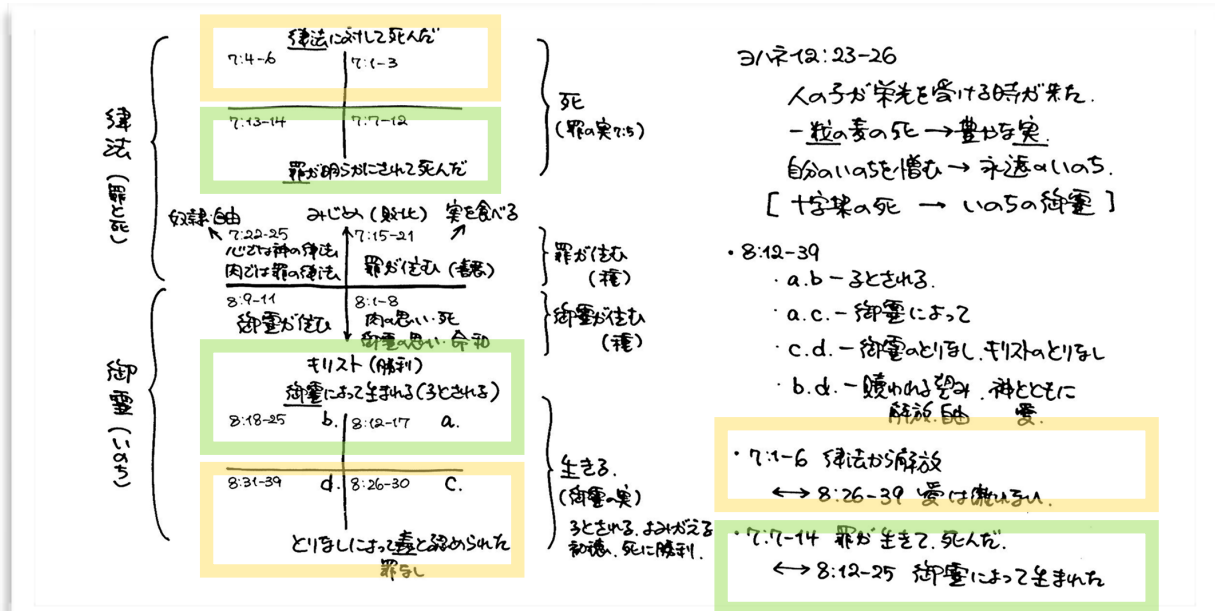 律法に対して死んだ
7:4-6 7:1-3
7:13-14 7:7-12
罪が明らかにされて死んだ
律法(罪と死)
死
(罪の実たち)
奴隷・自由 みじめ(敗北) 実を食べる
7:22-25 7:15-21
心では神の律法
肉では罪の律法
罪が住む(善悪)
罪が住む
(種)
8:9-11 8:1-8
御霊が住む
肉の思い・死
御霊の思い・命・和
御霊が住む
(種)
キリスト(勝利)
御霊によって生まれる(子とされる)
8:18-25 b. 8:12-17 a.
8:31-39 d. 8:26-30 c.
とりなしによって義と認められた
罪なし
御霊(いのち)
生きる.
(御霊の実)
子とされる.よみがえる
初穂、死に勝利.
ヨハネ12:23-26
人の子が栄光を受ける時が来た.
一粒の麦の死→豊かな実.
自分のいのちを憎む→永遠のいのち.
[十字架の死 → いのちの御霊]
・8:12-39
・a.b-子とされる.
・a.c.-御霊によって
・c.d.-御霊のとりなし.キリストのとりなし
・b.d.-贖われる望み.神とともに
解放.自由 愛.
・7:1-6 律法から解放
↔8:26-39 愛は離れない.
・7:7-14 罪が生きて.死んだ.
↔8:12-25 御霊によって生まれた